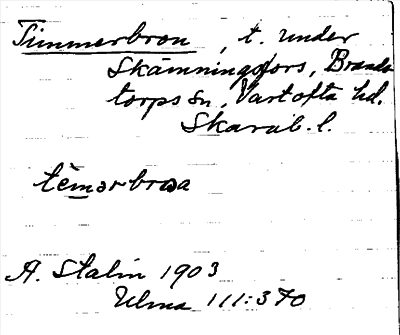 Timmerbron, t. under
Skämningsfors, Brands
torps sn, Vartofta hd.
Skarab. l.
tèmərbrωa
A. Stalin 1903
Ulma 111:370